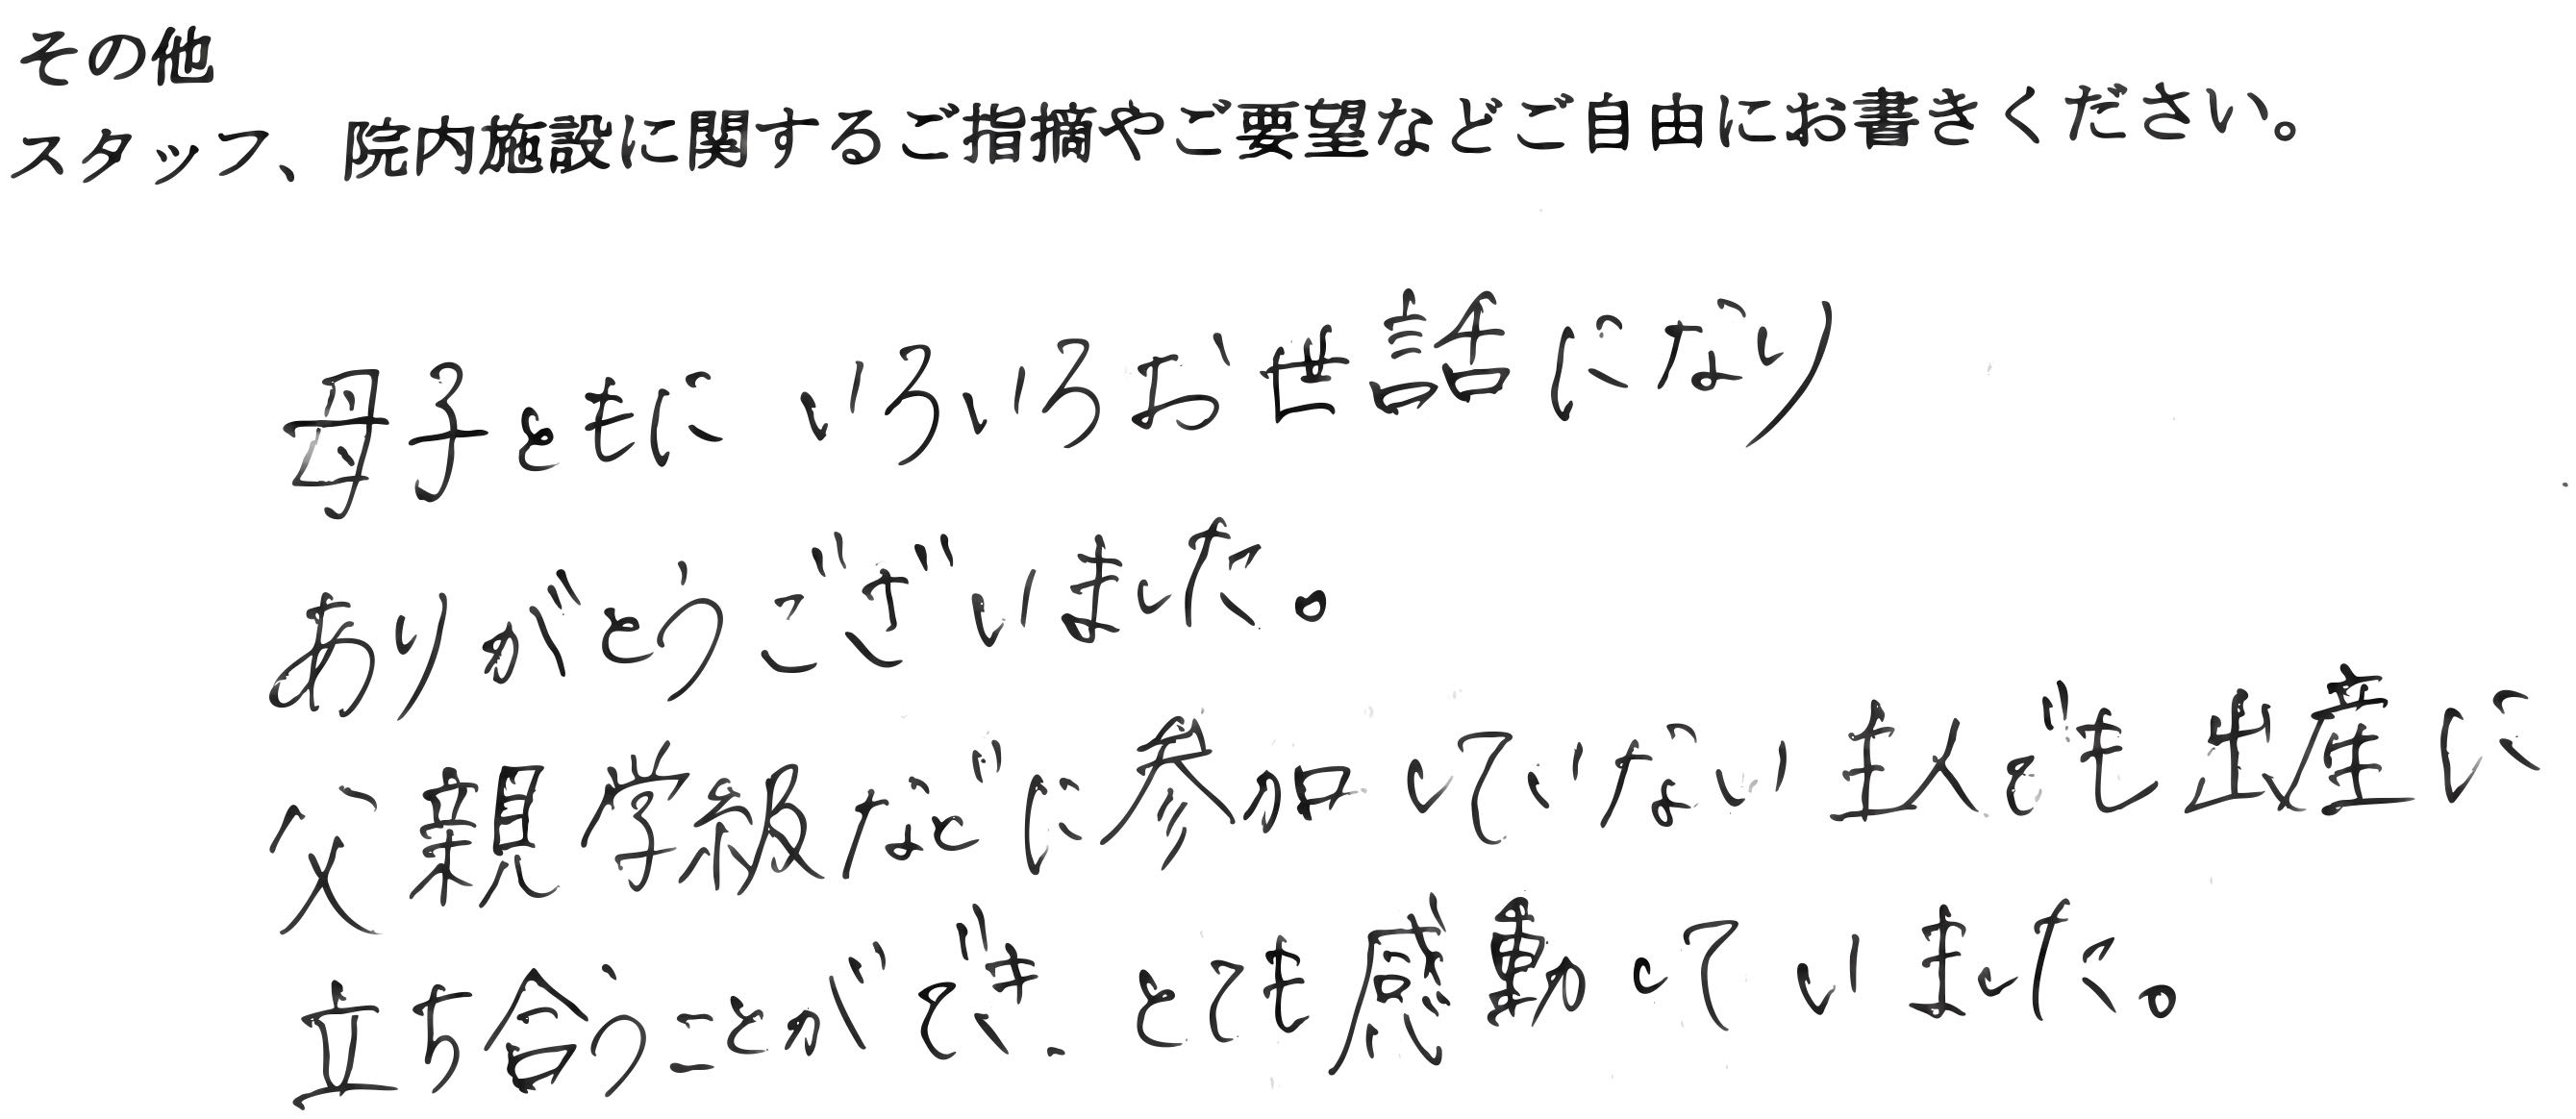 その他
スタッフ、院内施設に関するご指摘やご要望などご自由にお書きください。
母子ともにいろいろお世話になり
ありがとうございました。
父親学級などに参加していない主人でも出産に
立ち合うことができ、とても感動していました。